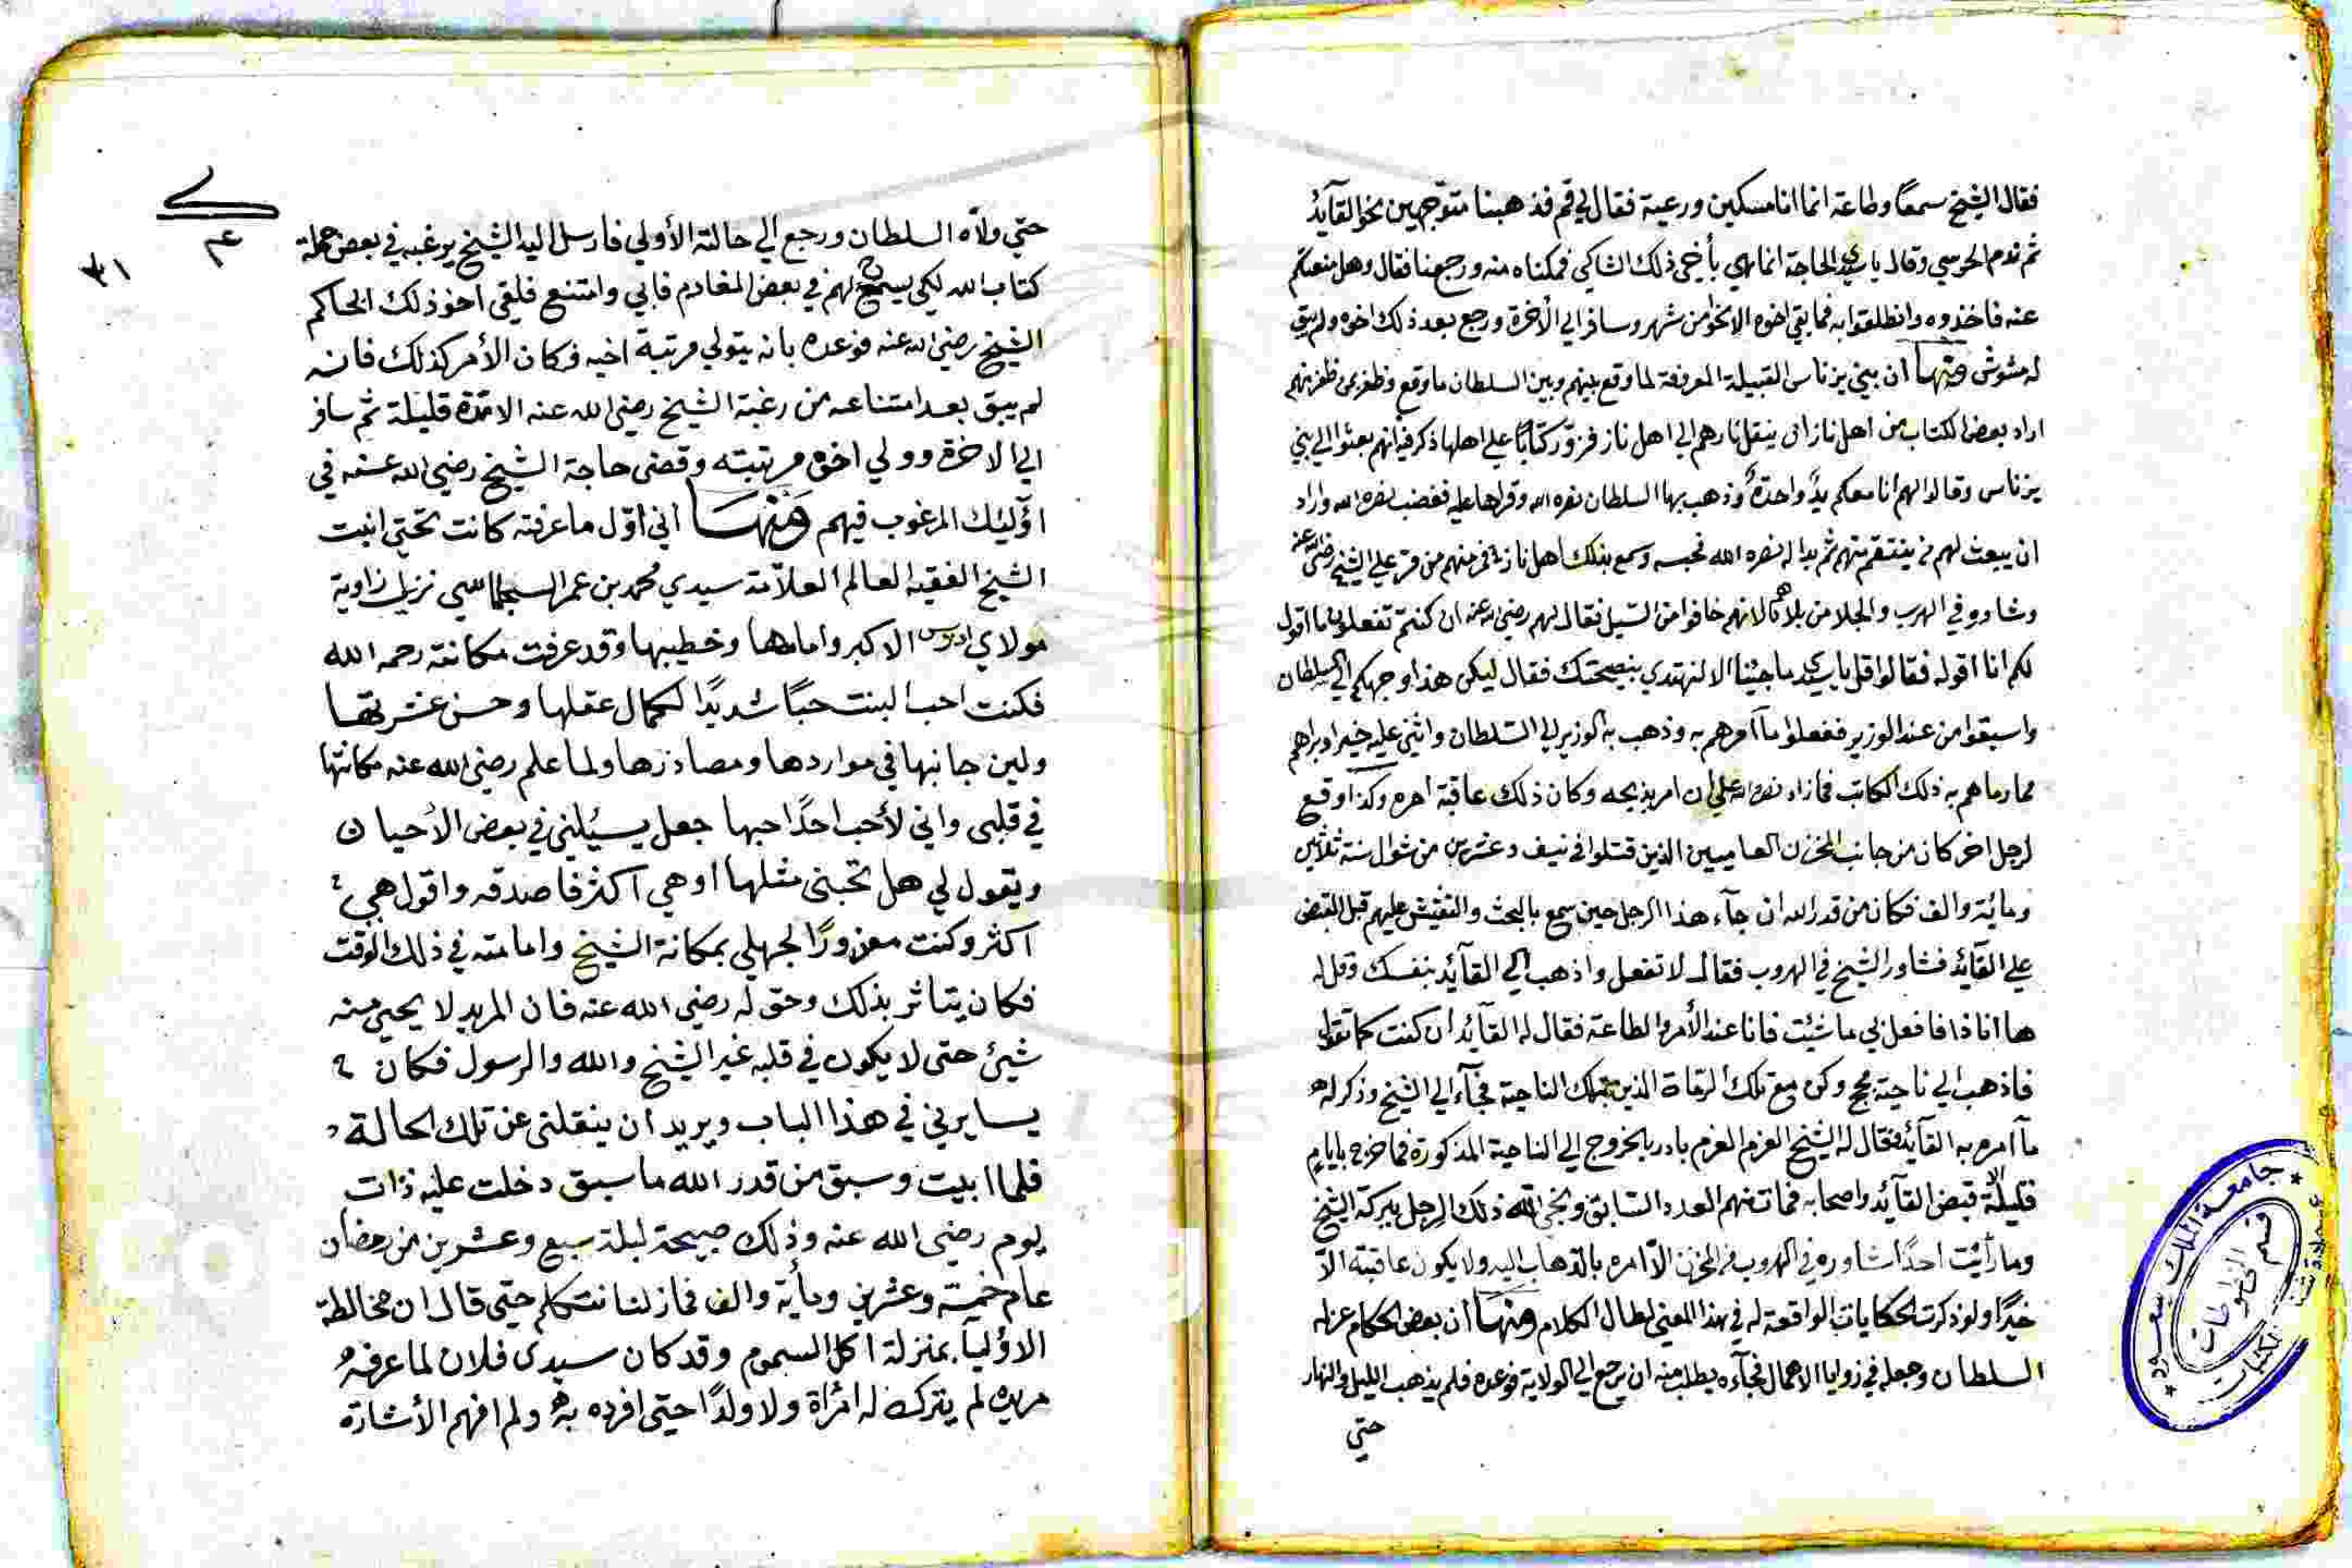 فقال الشيخ سمعًا وطاعة انما انا مسكين ورعية فقال لي قم فذهبنا متوجهين نحو القآئد
ثم ندم الحرسي وقال يا سيدي الحاجة انما هي بأخي ذلك الشاكي فمكناه منه ورجعنا فقال وهل منعتكم
عنه فاخذوه وانطلقوا به فما بقي اخوه الا نحوا من شهر وسافر الي الآخرة ورجع بعد ذلك اخوه ولم يبق
له مشوش ومنها ان بني يزناسن القبيلة المعروفة لما وقع بينهم وبين السلطان ما وقع وظفر بمن ظفر منهم
اراد بعض الكتاب من اهل تازا ان ينقل نارهم الي اهل تازا فزوّر كتابًا علي اهلها ذكر فيه انهم بعثوا الي بني
يزناسن وقالوا لهم انا معكم يدٌ واحدةٌ وذهب بها السلطان نصره الله وقراها عليه فغضب نصره الله واراد
ان يبعث لهم من ينتقم منهم ثم بدا له نصره الله فحبسه وسمع بذلك اهل تازا ففر منهم من فر علي الشيخ رضي الله عنه
وشاوره في الهرب والجلا من بلادهم لانهم خافوا من السيل فقال لهم رضي الله عنه ان كنتم تفعلون ما اقول
لكم انا اقوله فقالوا قل يا سيدي ما جئنا الا لنهتدي بنصيحتك فقال ليكن هذا وجهكم الي السلطان
واسبقوا من عند الوزير ففعلوا مآ امرهم به وذهب به الوزير الي السلطان واثني عليه خيرا وبراهم
مما رماهم به ذلك الكاتب فما زاد نصره الله علي ان امر بذبحه وكان ذلك عاقبة امره وكذا وقع
لرجل اخر كان من جانب المخزن العاميين الذين قتلوا في نيف وعشرين من شوال سنة ثلاثين
ومائة والف فكان من قدر الله ان جآء هذا الرجل حين سمع بالبحث والتفتيش عليهم قبل القبض
علي القآئد فشاور الشيخ في الهروب فقال له لا تفعل واذهب الي القآئد بنفسك وقل له
ها انا ذا فافعل بي ما شئت فانا عند الأمر والطاعة فقال له القآئد ان كنت كما تقول
فاذهب الي ناحية وكن مع تلك الرماة الذين بتلك الناحية فجآء الي الشيخ وذكر له
مآ امره به القآئد فقال له الشيخ العزم العزم بادر بالخروج الي الناحية المذكورة فما خرج بايام
قليلة الا قبض القآئد واصحابه فمات منهم العدد السابق ونجي الله ذلك الرجل ببركة الشيخ
وما رأيت احدًا شاوره في الهروب من المخزن الّا امره بالذهاب اليه ولا يكون عاقبته الّا
خيرًا ولو ذكرت الحكايات الواقعة له في هذا المعني لطال الكلام ومنها ان بعض الحكام عزله
السلطان وجعله في زوايا الاهمال فجآءه يطلب منه ان يرجع الي الولاية فوعده فلم يذهب الليل والنهار
حتي
٣١
حتي ولآه السلطان ورجع الي حالته الأولي فارسل اليه الشيخ يرغبه في بعض حملة
كتاب الله لكي يسمح لهم في بعض المغارم فابي وامتنع فلقي اخو ذلك الحاكم
الشيخ رضي الله عنه فوعده بانه يتولي مرتبة اخيه فكان الأمر كذلك فانه
لم يبق بعد امتناعه من رغبة الشيخ رضي الله عنه الا مدة قليلة ثم سافر
الي الاخرة وولي اخوه مرتبته وقضي حاجة الشيخ رضي الله عنه في
اوٓلئك المرغوب فيهم ومنها اني اوّل ما عرفته كانت تحتي ابنت
الشيخ الفقيه العالم العلّامة سيدي محمد بن عمر السجلماسي نزيل زاوية
مولاي ادريس الاكبر وامامها وخطيبها وقد عرفت مكانته رحمه الله
فكنت احب البنت حبًا شديدًا لكمال عقلها وحسن عشرتها
ولين جانبها في مواردها ومصادرها ولما علم رضي الله عنه مكانتها
في قلبي واني لا أحب احدًا حبها جعل يسئلني في بعض الأحيان
ويقول لي هل تحبني مثلها او هي اكثر فاصدقه واقول هي
اكثر وكنت معزورًا لجهلي بمكانة الشيخ وامامته في ذلك الوقت
فكان يتاثر بذلك وحق له رضي الله عنه فان المريد لا يجيء منه
شيئ حتى لا يكون في قلبه غير الشيخ والله والرسول فكان
يسايرني في هذا الباب ويريد ان ينقلني عن تلك الحالة
فلما ابيت وسبق من قدر الله ما سبق دخلت عليه ذات
يوم رضي الله عنه وذلك صبيحة ليلة سبع وعشرين من رمضان
عام خمسة وعشرين ومأية والف فما زلنا نتكلم حتي قال ان مخالطة
الاولياء بمنزلة اكل السموم وقد كان سيدي فلان لما عرفه
مريده لم يترك له امرأة ولا ولدًا حتى افرده به ولم افهم الأشارة
جامعة الملك سعود
قسم المخطوطات